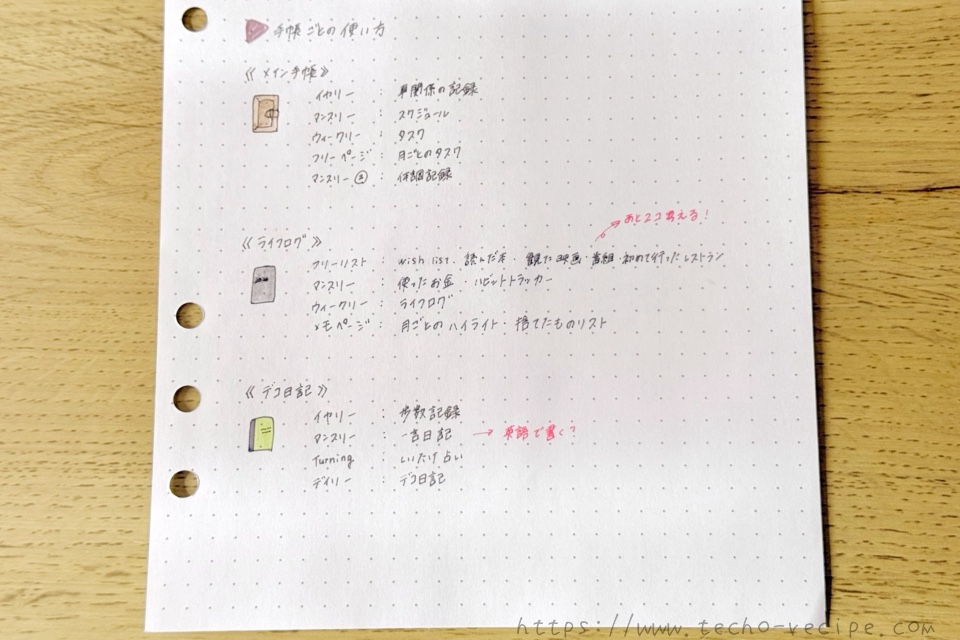 手帳ごとの使い方
《メイン手帳》
イヤリー : 車関係の記録
マンスリー : スケジュール
ウィークリー : タスク
フリーページ : 月ごとのタスク
マンスリー : 体調記録
あと2コ考える!
《ライフログ》
フリーリスト : wish list・読んだ本・観た映画・番組・初めて行ったレストラン
マンスリー : 使ったお金・ハビットトラッカー
ウィークリー : ライフログ
メモページ : 月ごとのハイライト・捨てたものリスト
《デコ日記》
イヤリー : 歩数記録
マンスリー : 一言日記 → 英語で書く?
Turning : しいたけ占い
デイリー : デコ日記
https://www.techo-recipe.com